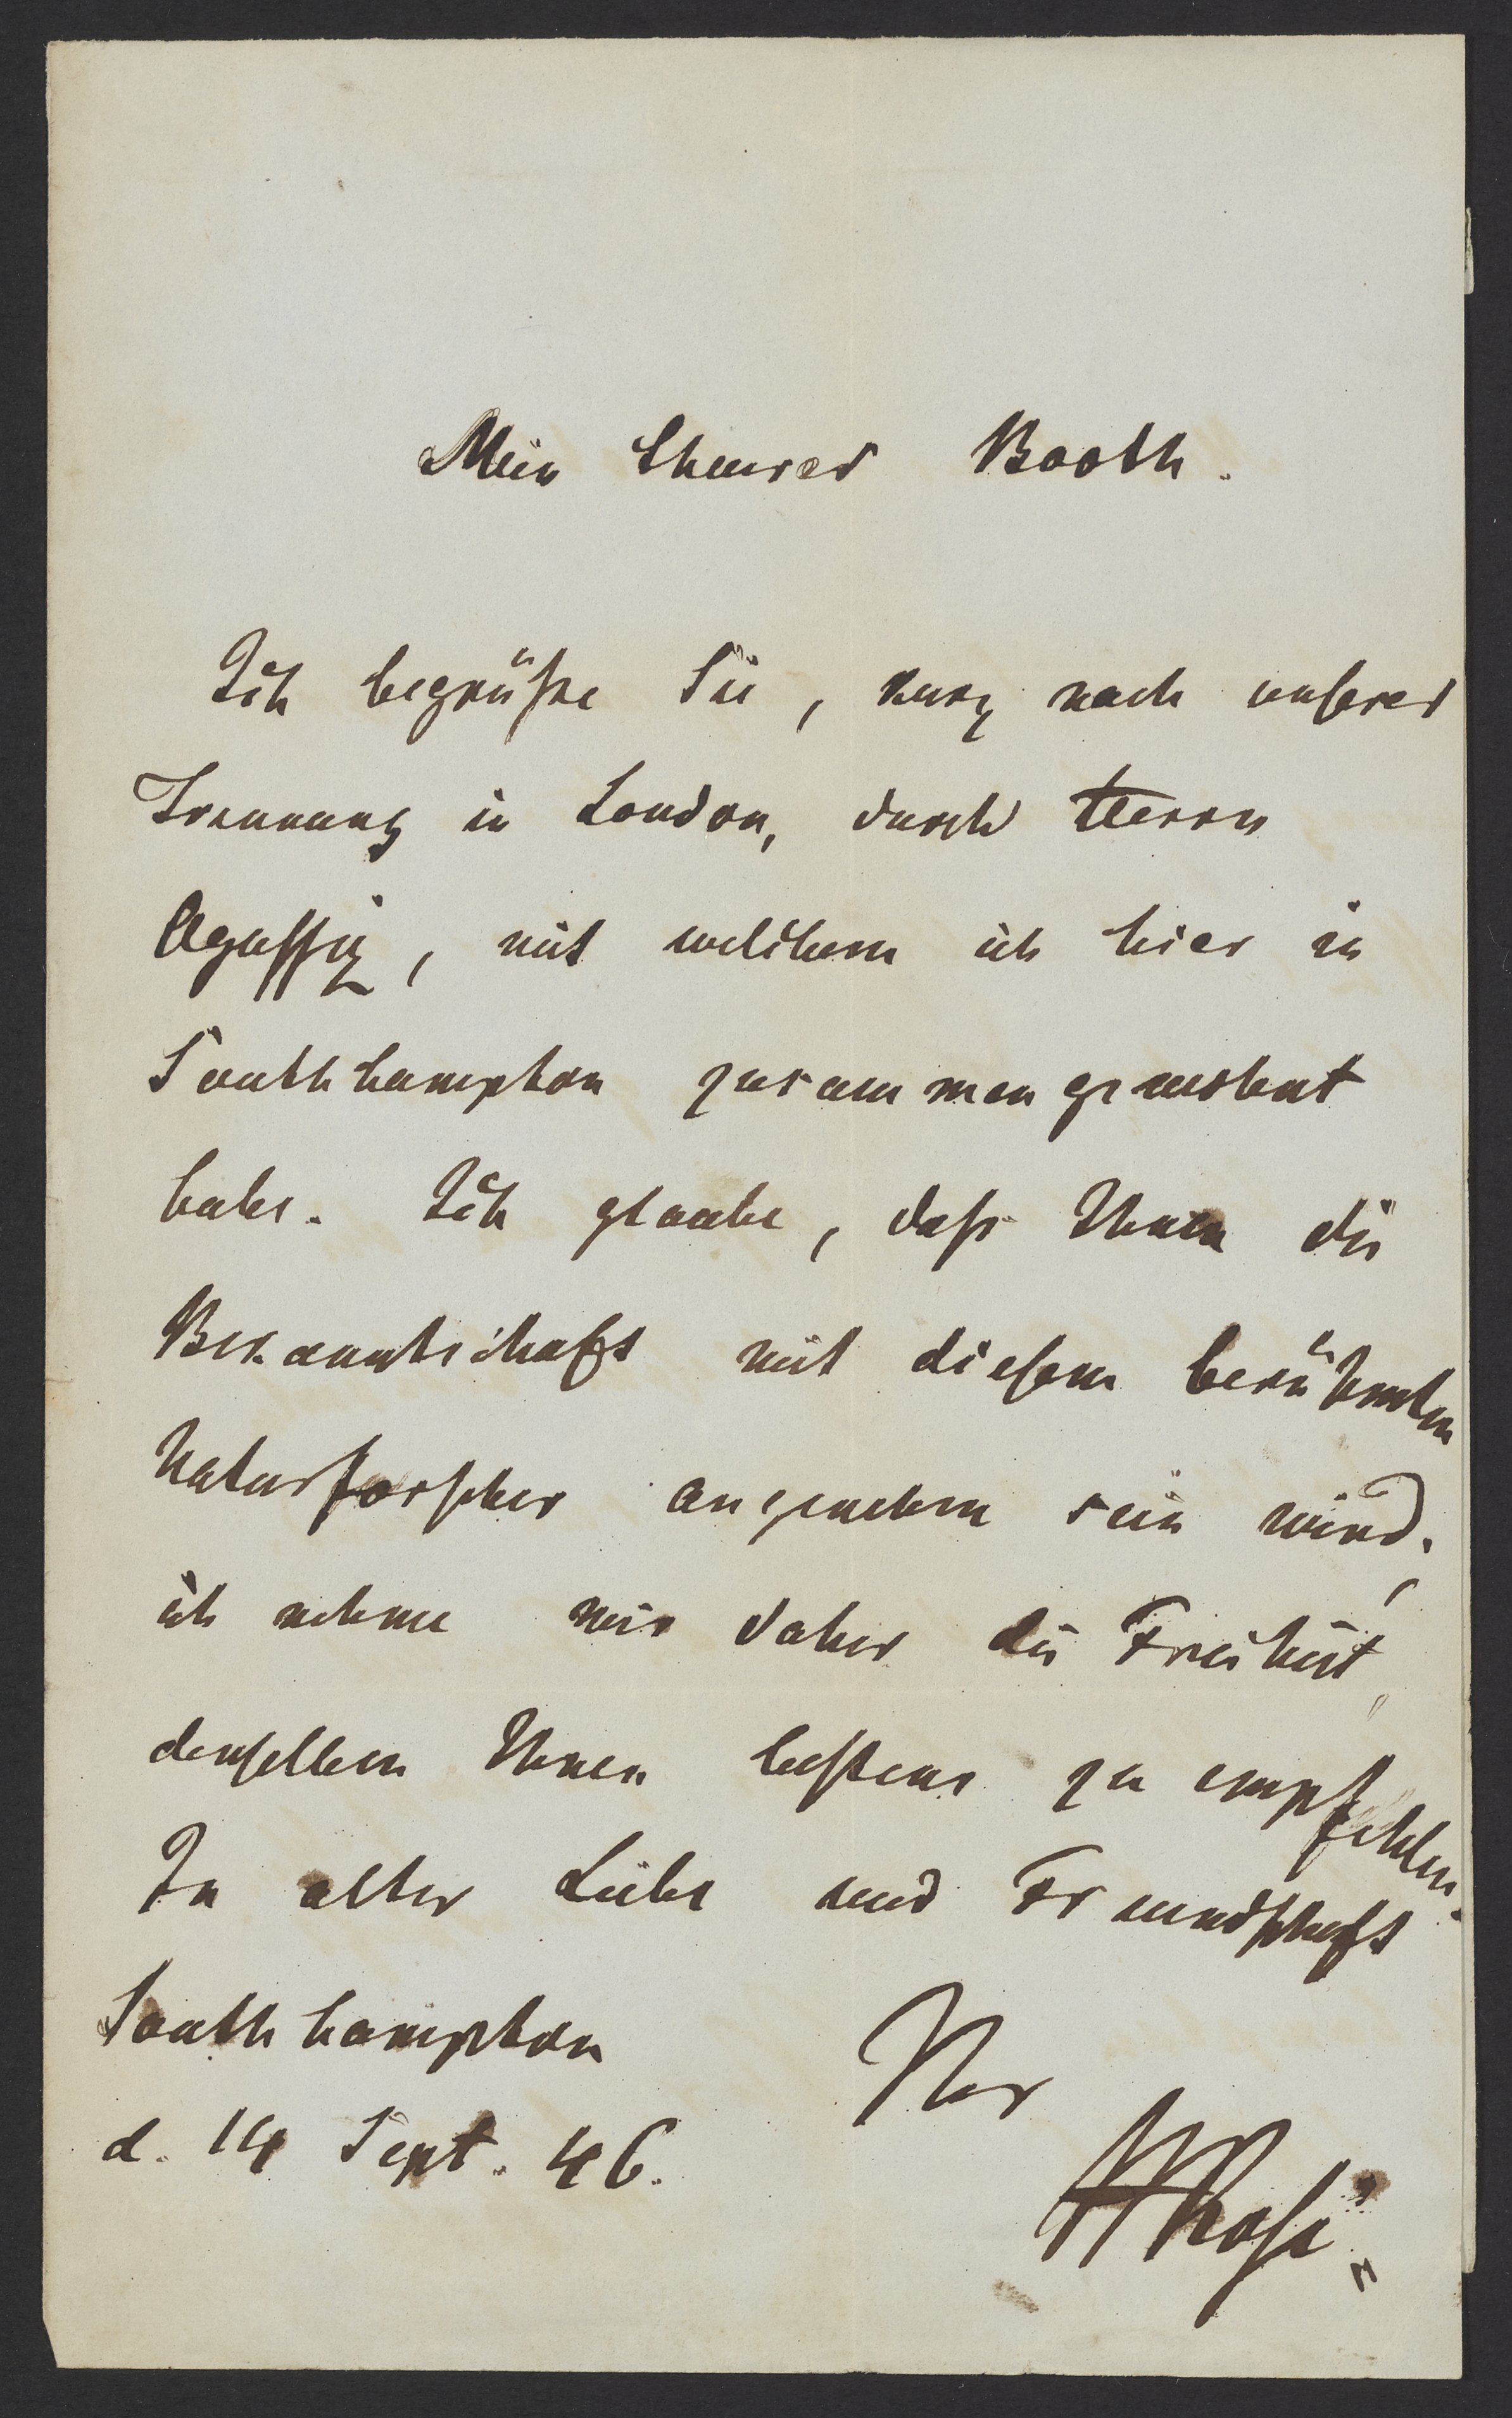 Mein theurer Booth.
Ich begrüße Sie, kurz nach unserer
Trennung in London, durch Herrn
Agassiz, mit welchem ich hier in
Southhampton zusammen gewohnt
habe. Ich glaube, dass Ihnen die
Bekanntschaft mit diesem berühmten
Naturforscher angenehm sein wird;
ich nehme mir daher die Freiheit,
denselben Ihnen bestens zu empfehlen.
In alter Liebe und Freundschaft
Southhampton
Ihr
d. 14 Sept. 46.
HRose